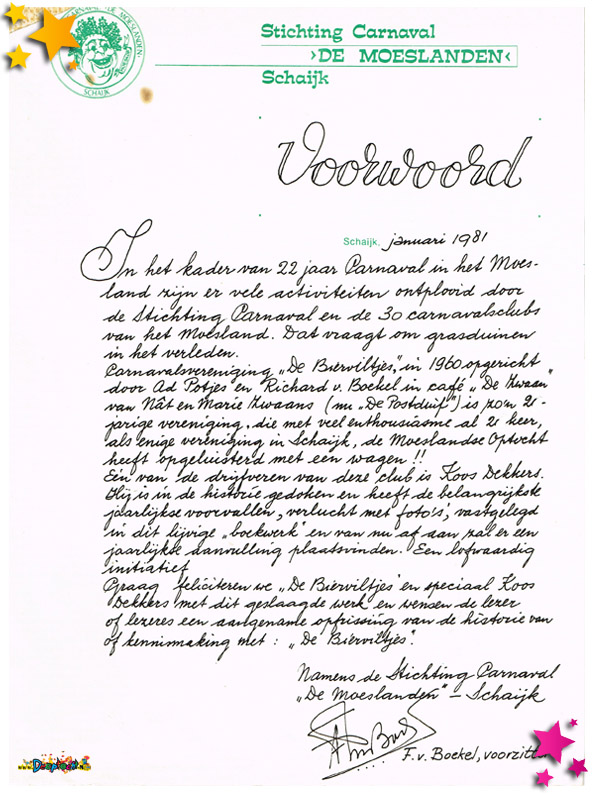 CARNAVAL DE MOESLANDEN
SCHAIJK
Stichting Carnaval
›DE MOESLANDEN‹
Schaijk
Voorwoord
Schaijk, januari 1981
In het kader van 22 jaar Carnaval in het Moes-
land zijn er vele activiteiten ontplooid door
de Stichting Carnaval en de 30 carnavalsclubs
van het Moesland. Dat vraagt om grasduinen
in het verleden.
Carnavalsvereniging „De Bierviltjes", in 1960 opgericht
door Ad Potjes en Richard v. Boekel in café „De Zwaan"
van Nât en Marie Zwaans (nu „De Postduif") is zo'n 21-
jarige vereniging, die met veel enthousiasme al 21 keer,
als enige vereniging in Schaijk, de Moeslandse Optocht
heeft opgeluisterd met een wagen !!
Eén van de drijfveren van deze club is Koos Dekkers.
Hij is in de historie gedoken en heeft de belangrijkste
jaarlijkse voorvallen, verlucht met foto's, vastgelegd
in dit lijvige „boekwerk" en van nu af aan zal er een
jaarlijkse aanvulling plaatsvinden. Een lofwaardig
initiatief
Graag feliciteren we „De Bierviltjes" en speciaal Koos
Dekkers met dit geslaagde werk en wensen de lezer
of lezeres een aangename opfrissing van de historie van
of kennismaking met : „De Bierviltjes".
Namens de Stichting Carnaval
„De Moeslanden" – Schaijk
F. v. Boekel, voorzitter